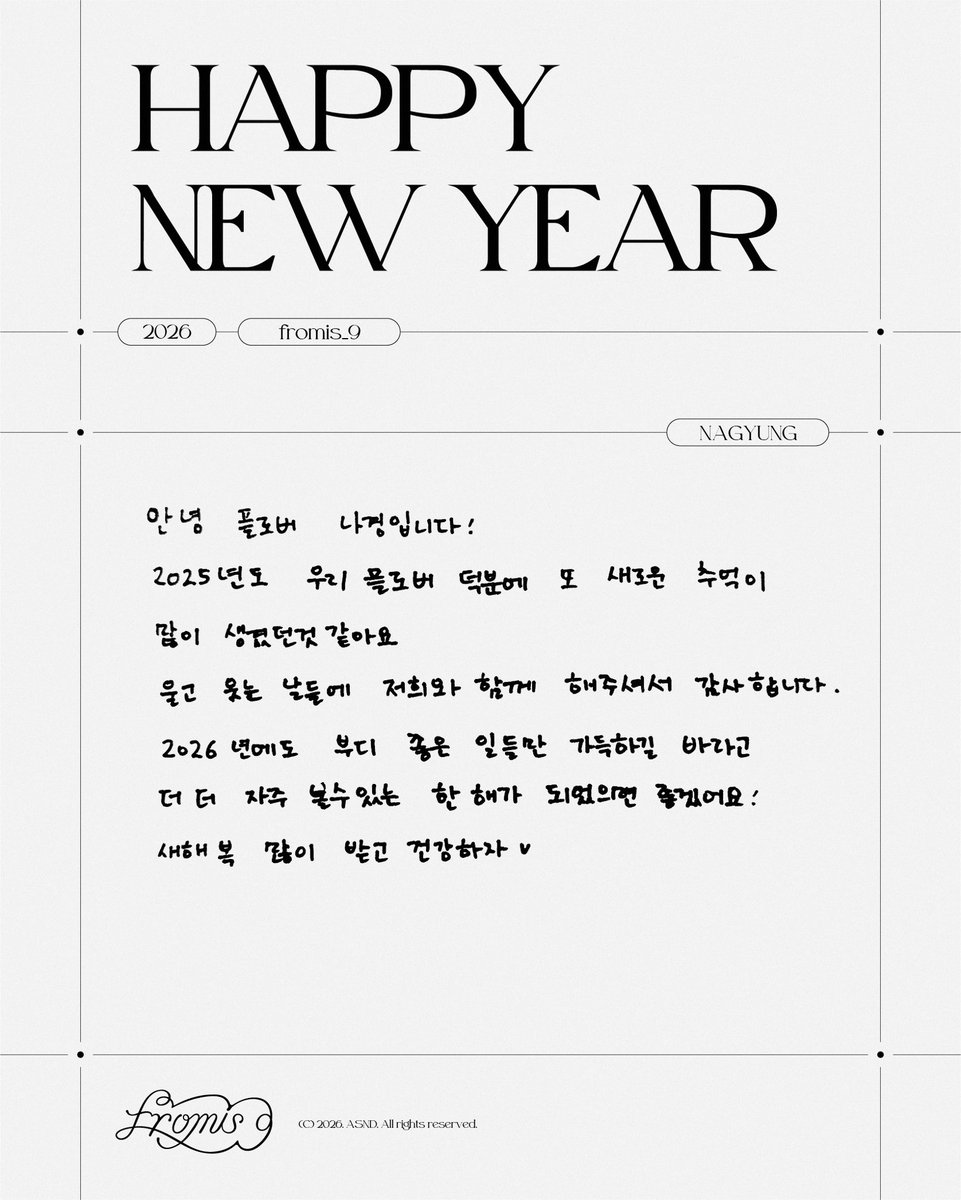 HAPPY
NEW YEAR
2026 fromis_9
NAGYUNG
안녕 플로버 나경입니다!
2025년도 우리 플로버 덕분에 또 새로운 추억이
많이 생겼던것 같아요
울고 웃는 날들에 저희와 함께 해주셔서 감사합니다.
2026년에도 부디 좋은 일들만 가득하길 바라고
더 더 자주 볼수있는 한 해가 되었으면 좋겠어요!
새해 복 많이 받고 건강하자 ♥
fromis 9
(C) 2026. ASND. All rights reserved.